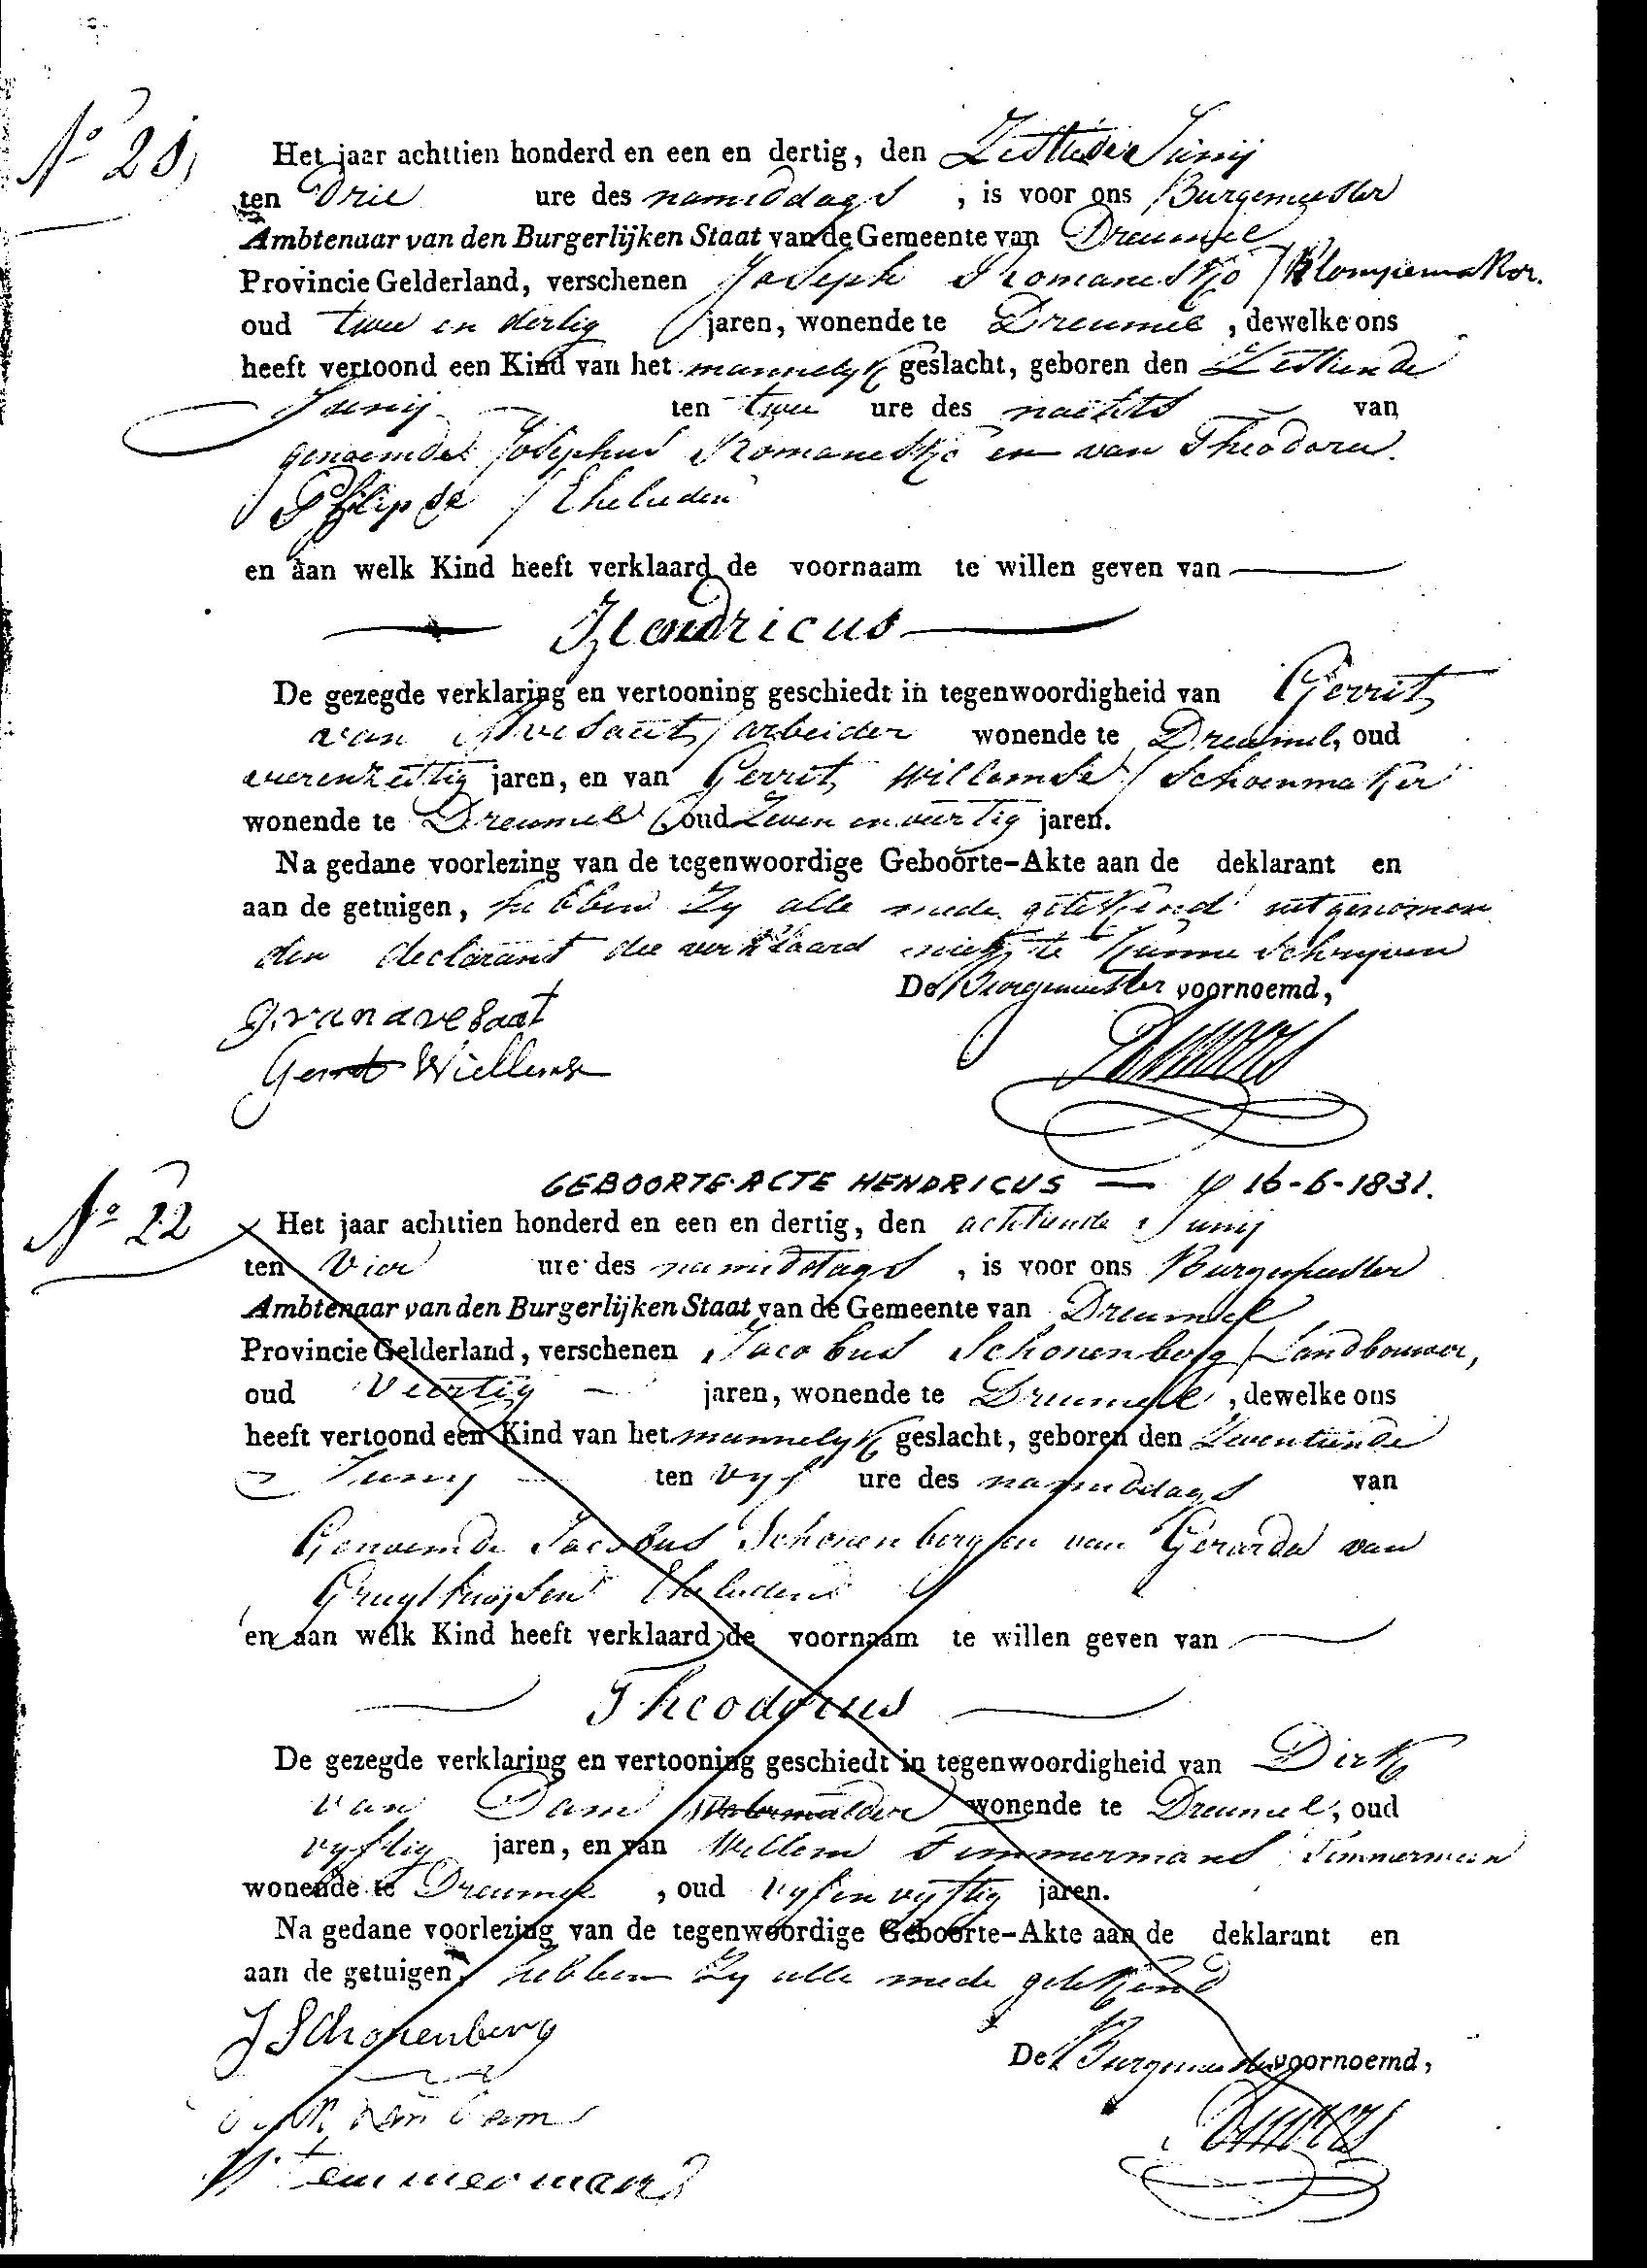 No 21,
Het jaar achttien honderd en een en dertig, den Zestiende Junij
ten Drie ure des namiddags, is voor ons Burgemeester
Ambtenaar van den Burgerlijken Staat van de Gemeente van Dreumel
Provincie Gelderland, verschenen Joseph Romanesko / Klompemaker.
oud twee en dertig jaren, wonende te Dreumel, dewelke ons
heeft vertoond een Kind van het mannelyk geslacht, geboren den Zestiende
Junij ten twee ure des nachts van
genoemde Josephus Romanesko en van Theodora
Philipse / Eheluden
en aan welk Kind heeft verklaard de voornaam te willen geven van
Hendricus
De gezegde verklaring en vertooning geschiedt in tegenwoordigheid van Gerrit
van Avesaat / arbeider wonende te Dreumel, oud
vierenzestig jaren, en van Gerrit Willemse / Schoenmaker
wonende te Dreumel, oud Zeven en veertig jaren.
Na gedane voorlezing van de tegenwoordige Geboorte-Akte aan de deklarant en
aan de getuigen, hebben Zy alle mede getekend uitgenomen
den declarant die verklaard niet te kunne schryven
De Burgemeester voornoemd,
G. van avesaat
Gerrit Willemse
GEBOORTE-ACTE HENDRICUS — 16-6-1831.
No 22
Het jaar achttien honderd en een en dertig, den achtiende Junij
ten Vier ure des namiddags, is voor ons Burgemeester
Ambtenaar van den Burgerlijken Staat van de Gemeente van Dreumel
Provincie Gelderland, verschenen Jacobus Schonenberg / Landbouwer,
oud Veertig jaren, wonende te Dreumel, dewelke ons
heeft vertoond een Kind van het mannelyk geslacht, geboren den Zeventiende
Junij ten vyf ure des namiddags van
Genoemde Jacobus Schonenberg en van Gerarda van
Eheluden
en aan welk Kind heeft verklaard de voornaam te willen geven van
Theodorus
De gezegde verklaring en vertooning geschiedt in tegenwoordigheid van Dirk
van Dam wonende te Dreumel, oud
vyftig jaren, en van Willem Timmermans Timmerman
wonende te Dreumel, oud vyf en vyftig jaren.
Na gedane voorlezing van de tegenwoordige Geboorte-Akte aan de deklarant en
aan de getuigen, hebben Zy alle mede getekend
J Schonenberg
De Burgemeester voornoemd,
Dirk van Dam
W Temmermans